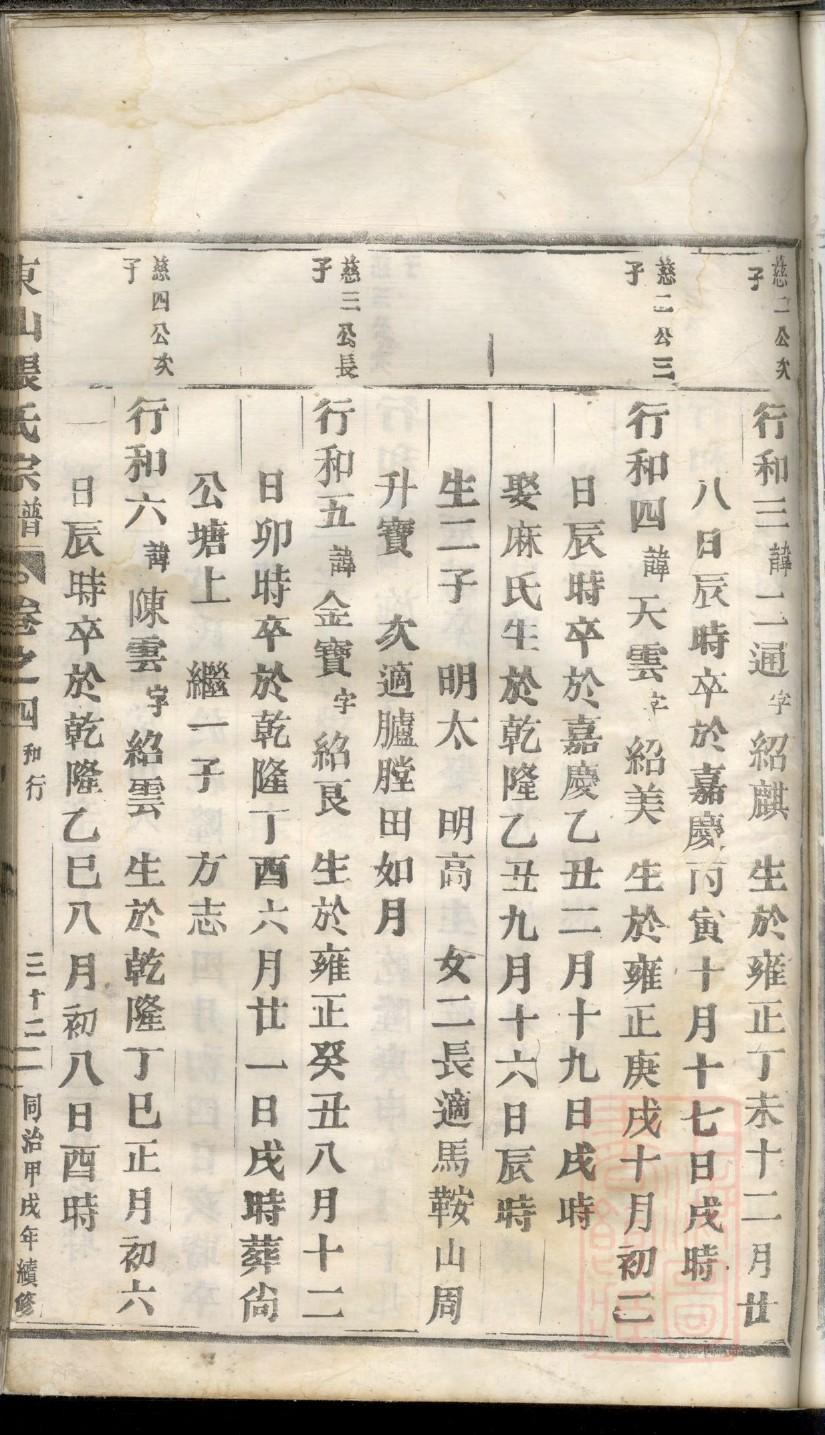 慈二公次子
行和三諱二通字紹麒 生於雍正丁未十二月廿
八日辰時卒於嘉慶丙寅十月十七日戌時
慈二公三子
行和四諱天雲字紹美 生於雍正庚戌十月初二
日辰時卒於嘉慶乙丑二月十九日戌時
娶麻氏生於乾隆乙丑九月十六日辰時
生二子 明太 明高 女二長適馬鞍山周
升寶 次適臚膛田如月
慈三公長子
行和五諱金寶字紹良 生於雍正癸丑八月十二
日卯時卒於乾隆丁酉六月廿一日戌時葬尙
公塘上 繼一子方志
慈四公次子
行和六諱陳雲字紹雲 生於乾隆丁巳正月初六
日辰時卒於乾隆乙巳八月初八日酉時
東山張氏宗譜 卷之四 和行 三十二 同治甲戌年續修